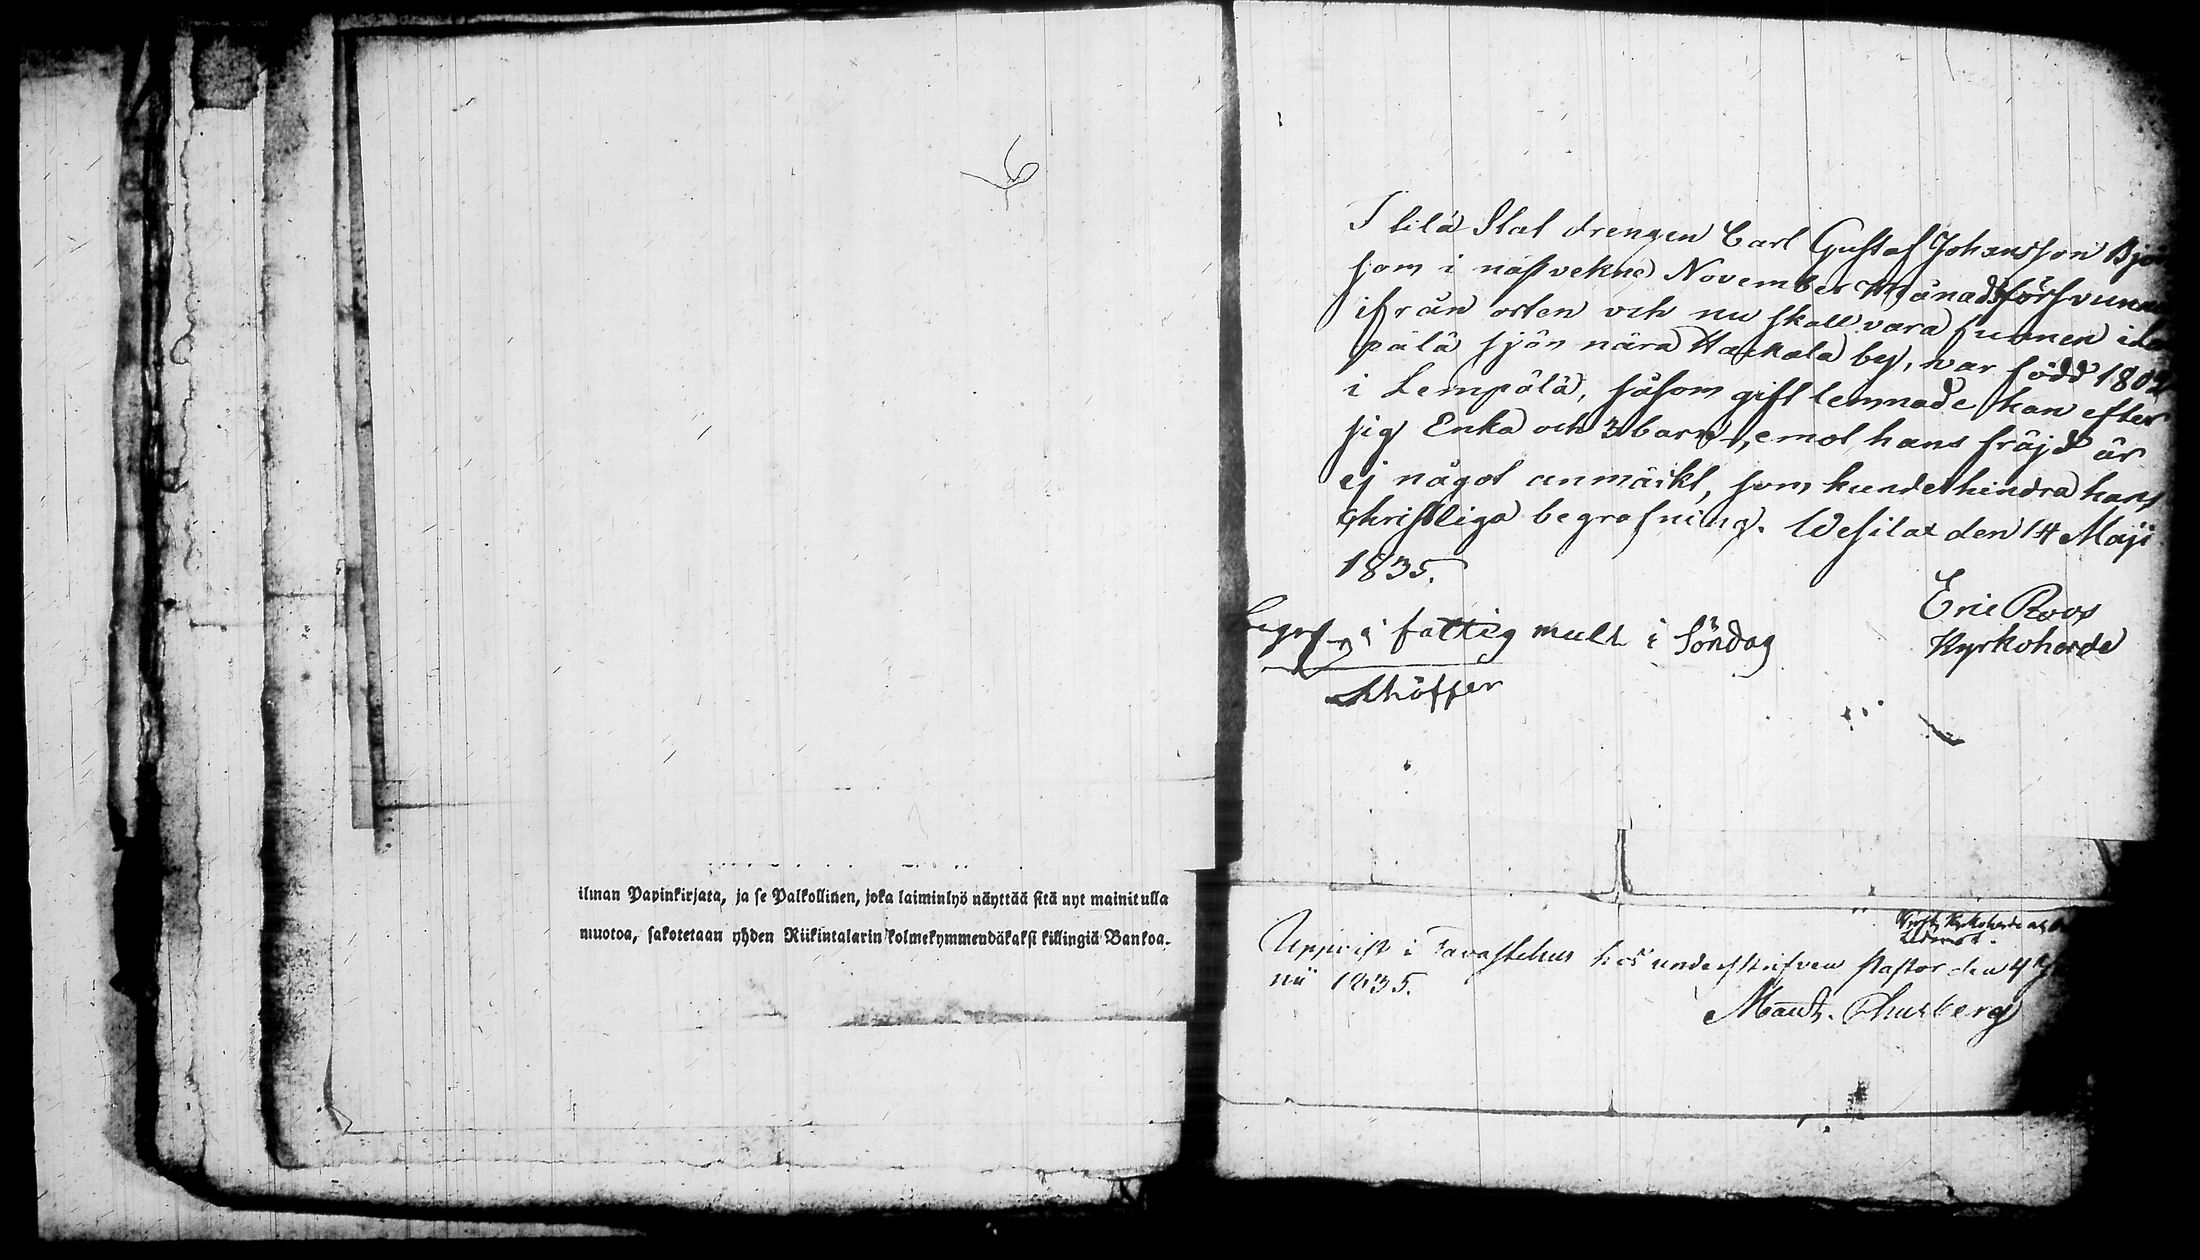 ilman Papinkirjata, ja se Palkollinen, joka laiminlyö näyttää sitä nyt mainitulla
muotoa, sakotetaan yhden Riikintalarin kolmekymmendäkaksi killingiä Bankoa.
Stat drengen Carl Gustaf Johansson
som i näst vekne November Månad försvunn
ifrån orten och nu skall vara funnen i
pälä sjön nära Hackala by, var född 1802
i Lempälä, såsom gift lemnade han efter
sig Enka och 3 barn, emot hans fräjd är
ej något anmärkt, som kunde hindra hans
christliga begrafning. Wesilax den 14 Maji
1835.
Eric Roos
Kyrkoherde
i fattig mull i Söndag
Uppvist i Tavastehus hos underskrifven Pastor den 4
nii 1835.